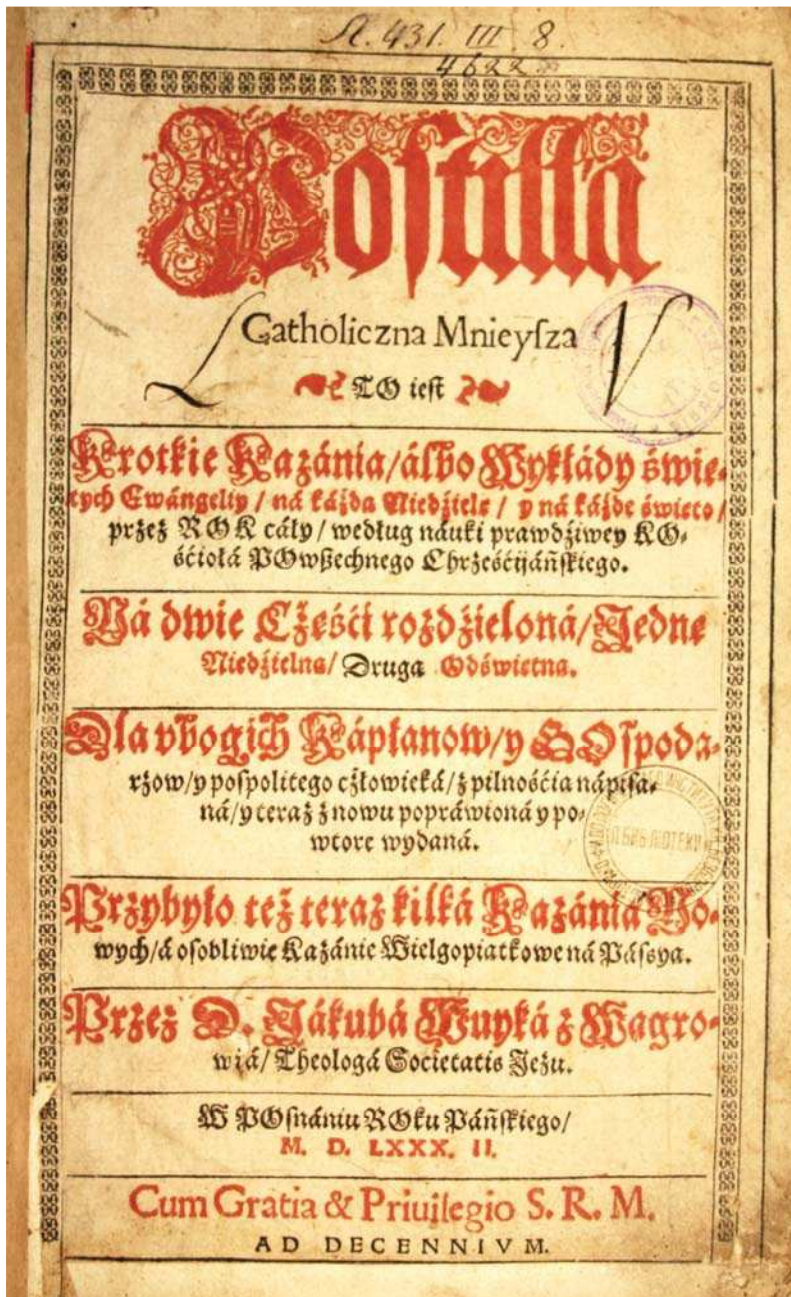 A. 431. III. 8.
4622
Postilla
Catholiczna Mnieysza
TO iest
Krotkie Kazánia/álbo Wykłády świę-
tych Ewángeliy / ná káżdą Niedźielę / y ná káżde święto /
przez ROK cáły / według náuki prawdźiwey KO-
śćiołá POwszechnego Chrześćijáńskiego.
Ná dwie Częśći rozdźieloná/Jednę
Niedźielną/ Druga Odświętną.
Dla vbogich Kápłanow/y GOspoda-
rzow/y pospolitego człowieká/z pilnośćią nápisa-
ná/y teraz znowu popráwioná y po-
wtore wydaná.
Przybyło też teraz kilká Kazánia No-
wych/á osobliwie Kazánie Wielgopiątkowe ná Pássyą.
Przez D. Jákubá Wuyká z Wągro-
wiá/ Theologá Societatis Jezu.
W POznániu ROku Páńskiego/
M. D. LXXX. II.
Cum Gratia & Priuilegio S. R. M.
AD DECENNIVM.